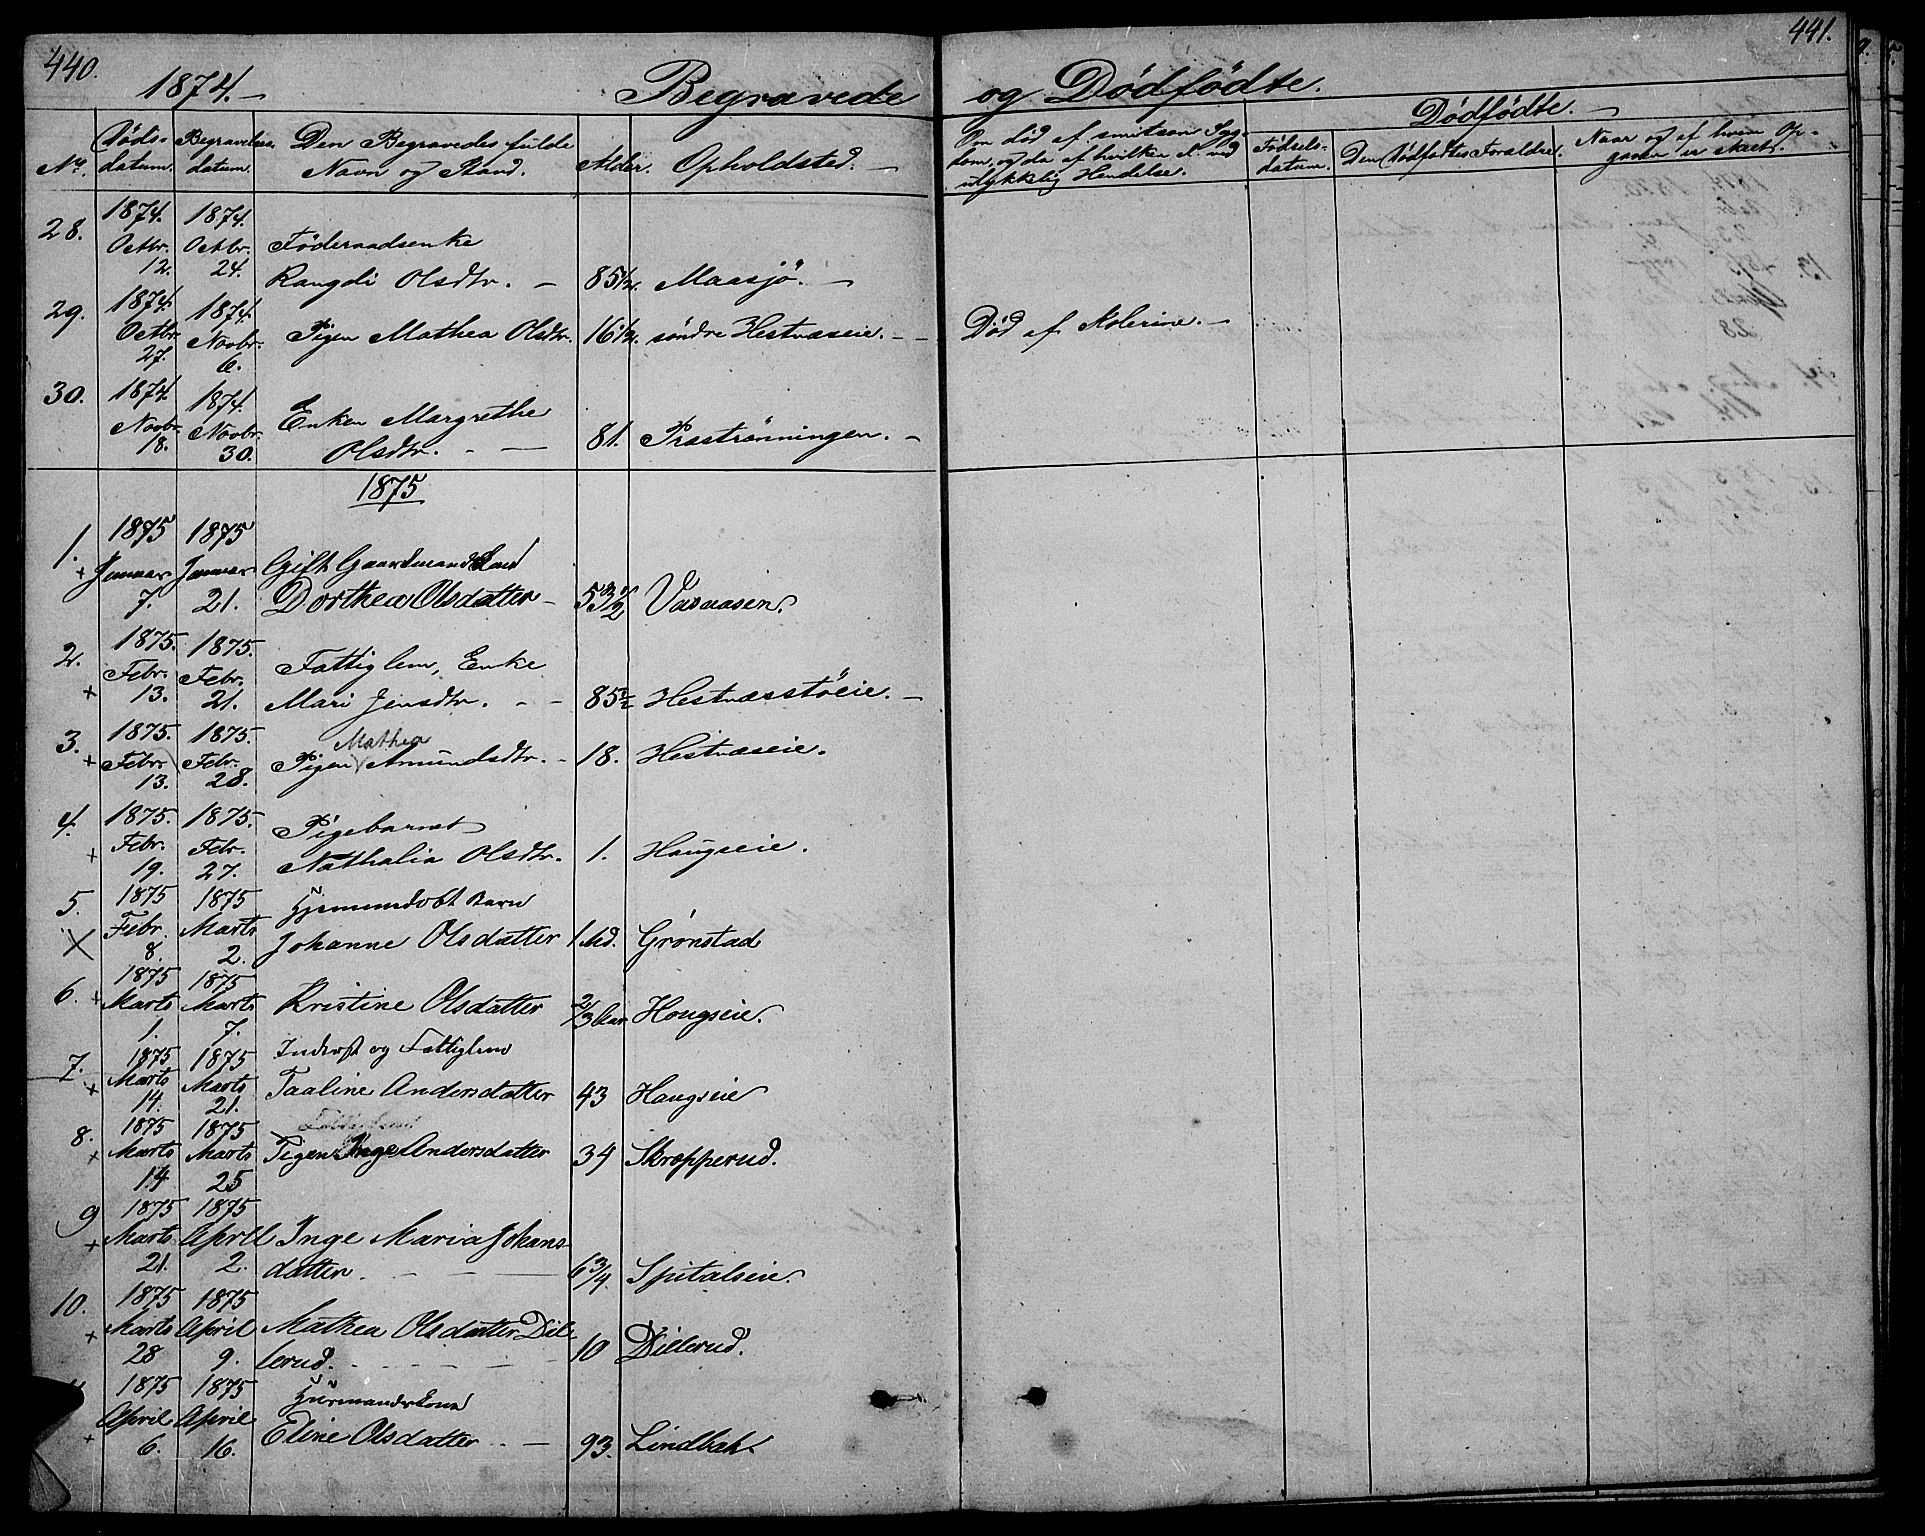 440.
1874.
Begravede og Dødfødte.
441.
No. Døds-datum. Begravelses-datum. Den Begravedes fulde Navn og Stand. Alder. Opholdsted.
Om død af smitsom Syg-
dom, og da af hvilken
ulykkelig Hendelse.
Dødfødte.
Fødsels-datum. Den Dødfødtes Forældre. Naar og af hvem Op-
gaven er skeet.
28. 1874. Octbr. 12. 1874. Octbr. 24. Føderaadsenke
Rangdi Olsdtr. 85 1/2. Maasjø.
29. 1874. Octbr. 27. 1874. Novbr. 6. Pigen Mathea Olsdtr. 16 1/2. søndre Hestnæseie. Død af Kolerine.
30. 1874. Novbr. 18. 1874. Novbr. 30. Enken Margrethe
Olsdtr. 81. Præstrønningen.
1875
1. 1875 Januar 7. 1875 Januar 21. Gift Gaardmandskone
Dorthea Olsdatter 53 1/2
2. 1875. Febr. 13. 1875. Febr. 21. Fattiglem, Enke
Mari Jensdtr. 85 1/2 Hestnæsstøeie.
3. 1875. Febr. 13. 1875. Febr. 28. Mathea
Pigen Amundsdtr. 18. Hestnæseie.
4. 1875. Febr. 19. 1875. Febr. 27. Pigebarnet
Nathalia Olsdtr. 1. Haugseie.
5. 1875 Febr. 8. 1875 Marts 2. Hjemmedøbt Barn
Johanne Olsdatter 1 Md. Grønstad
6. 1875 Marts 1. 1875 Marts 7. Kristine Olsdatter 2/3 Aar Hougseie.
7. 1875 Marts 14. 1875 Marts 21. Inderst og Fattiglem
Taaline Andersdatter 43 Haugseie
8. 1875 Marts 14 1875 Marts 25 Pigen Inge Andersdatter 34 Skrøpperud.
9 1875 Marts 21. 1875 April 2. Inge Maria Johans-
datter. 6 3/4. Spitalseie.
10. 1875 Marts 28 1875 April 9. Mathea Olsdatter Dil-
lerud. 10 Dillerud.
1875 April 6. 1875 April 16. Huusmandskone
Eline Olsdatter 93. Lindbak.